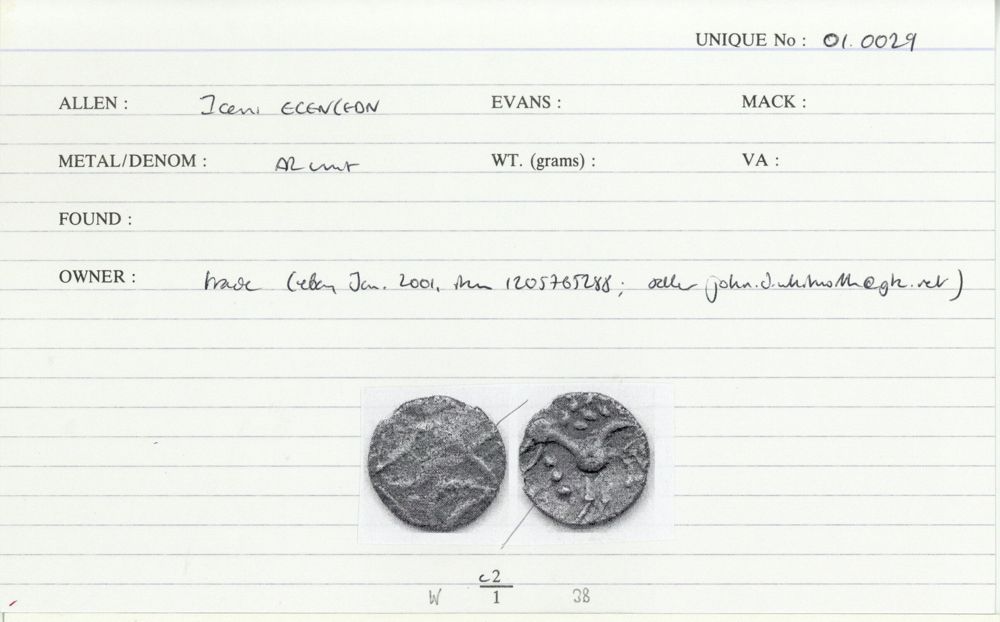 UNIQUE No : 01.0029
ALLEN : Iceni ECEN(EDN EVANS : MACK :
METAL/DENOM : AR unit WT. (grams) : VA :
FOUND :
OWNER : trade (ebay Jan. 2001, item 1205765288; seller
c2
W 1 38